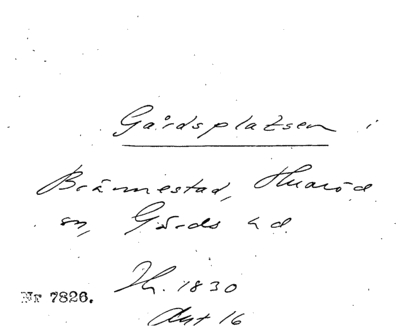 Gårdsplatsen i
Brännestad, Huaröd
sn, Gärds hd.
Nr 7826.
1830
Ant 16